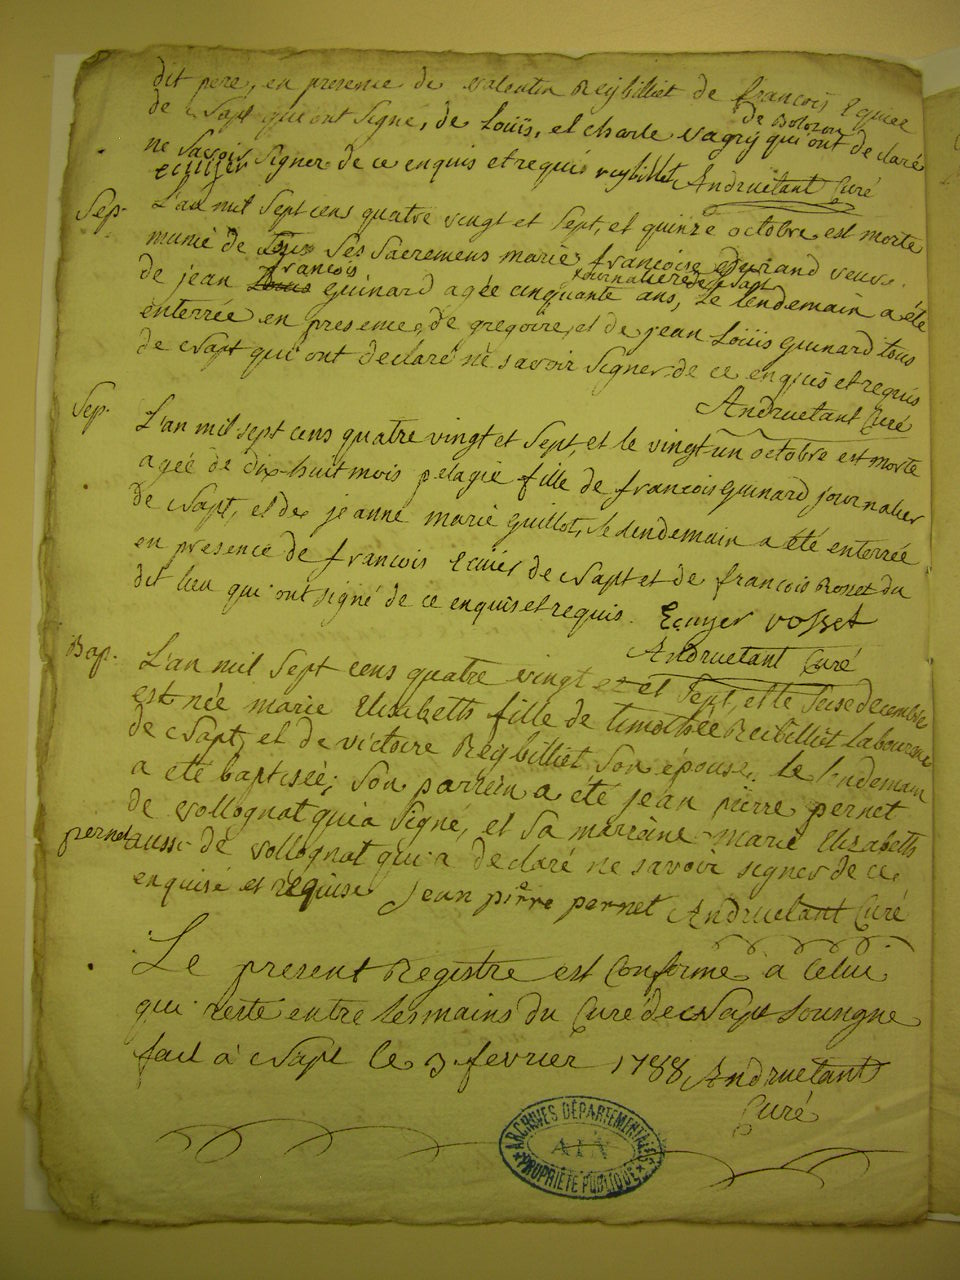 dit pere, en presence de valentin Reybilliet de françois Equier
de Napt qui ont signé, de Louis, et charle vagry de Bolozon qui ont declaré
ne savoir signer de ce enquis et requis reybilliet Andruetant Curé
ecuijer
Sep. L'an mil sept cens quatre vingt et sept, et quinze octobre est morte
munie de ses sacremens marie françoise Durand veuve
de jean françois guinard agée cinquante ans, journaliere de Napt Le lendemain a été
enterrée en presence, de gregoire, et de jean Louis guinard tous
de Napt qui ont declaré ne savoir signer de ce enquis et requis
Andruetant Curé
Sep. L'an mil sept cens quatre vingt et sept, et le vingt un octobre est morte
agée de dix-huit mois pelagie fille de françois guinard journalier
de Napt, et de jeanne marie guillot, le lendemain a été enterrée
en presence de françois Ecuier de Napt et de françois Rosset du
dit lieu qui ont signé de ce enquis et requis. Ecuyer rosset
Andruetant Curé
Bap. L'an mil sept cens quatre vingt et sept, et le seise decembre
est née marie Elisabeth fille de timothée Reibilliet laboureur
de Napt, et de victoire Reybilliet son épouse, le lendemain
a eté baptisée; son parrein a eté jean pierre pernet
de vollognat qui a signé, et sa marraine marie Elisabeth
pernet aussi de vollognat qui a declaré ne savoir signer de ce
enquise et requise jean pierre pernet Andruetant Curé
Le present Registre est Conforme a Celui
qui reste entre les mains du Curé de Napt Soussigné
fait à Napt le 3 fevrier 1788 Andruetant
Curé
ARCHIVES DÉPARTEMENTALES
AIN
PROPRIÉTÉ PUBLIQUE